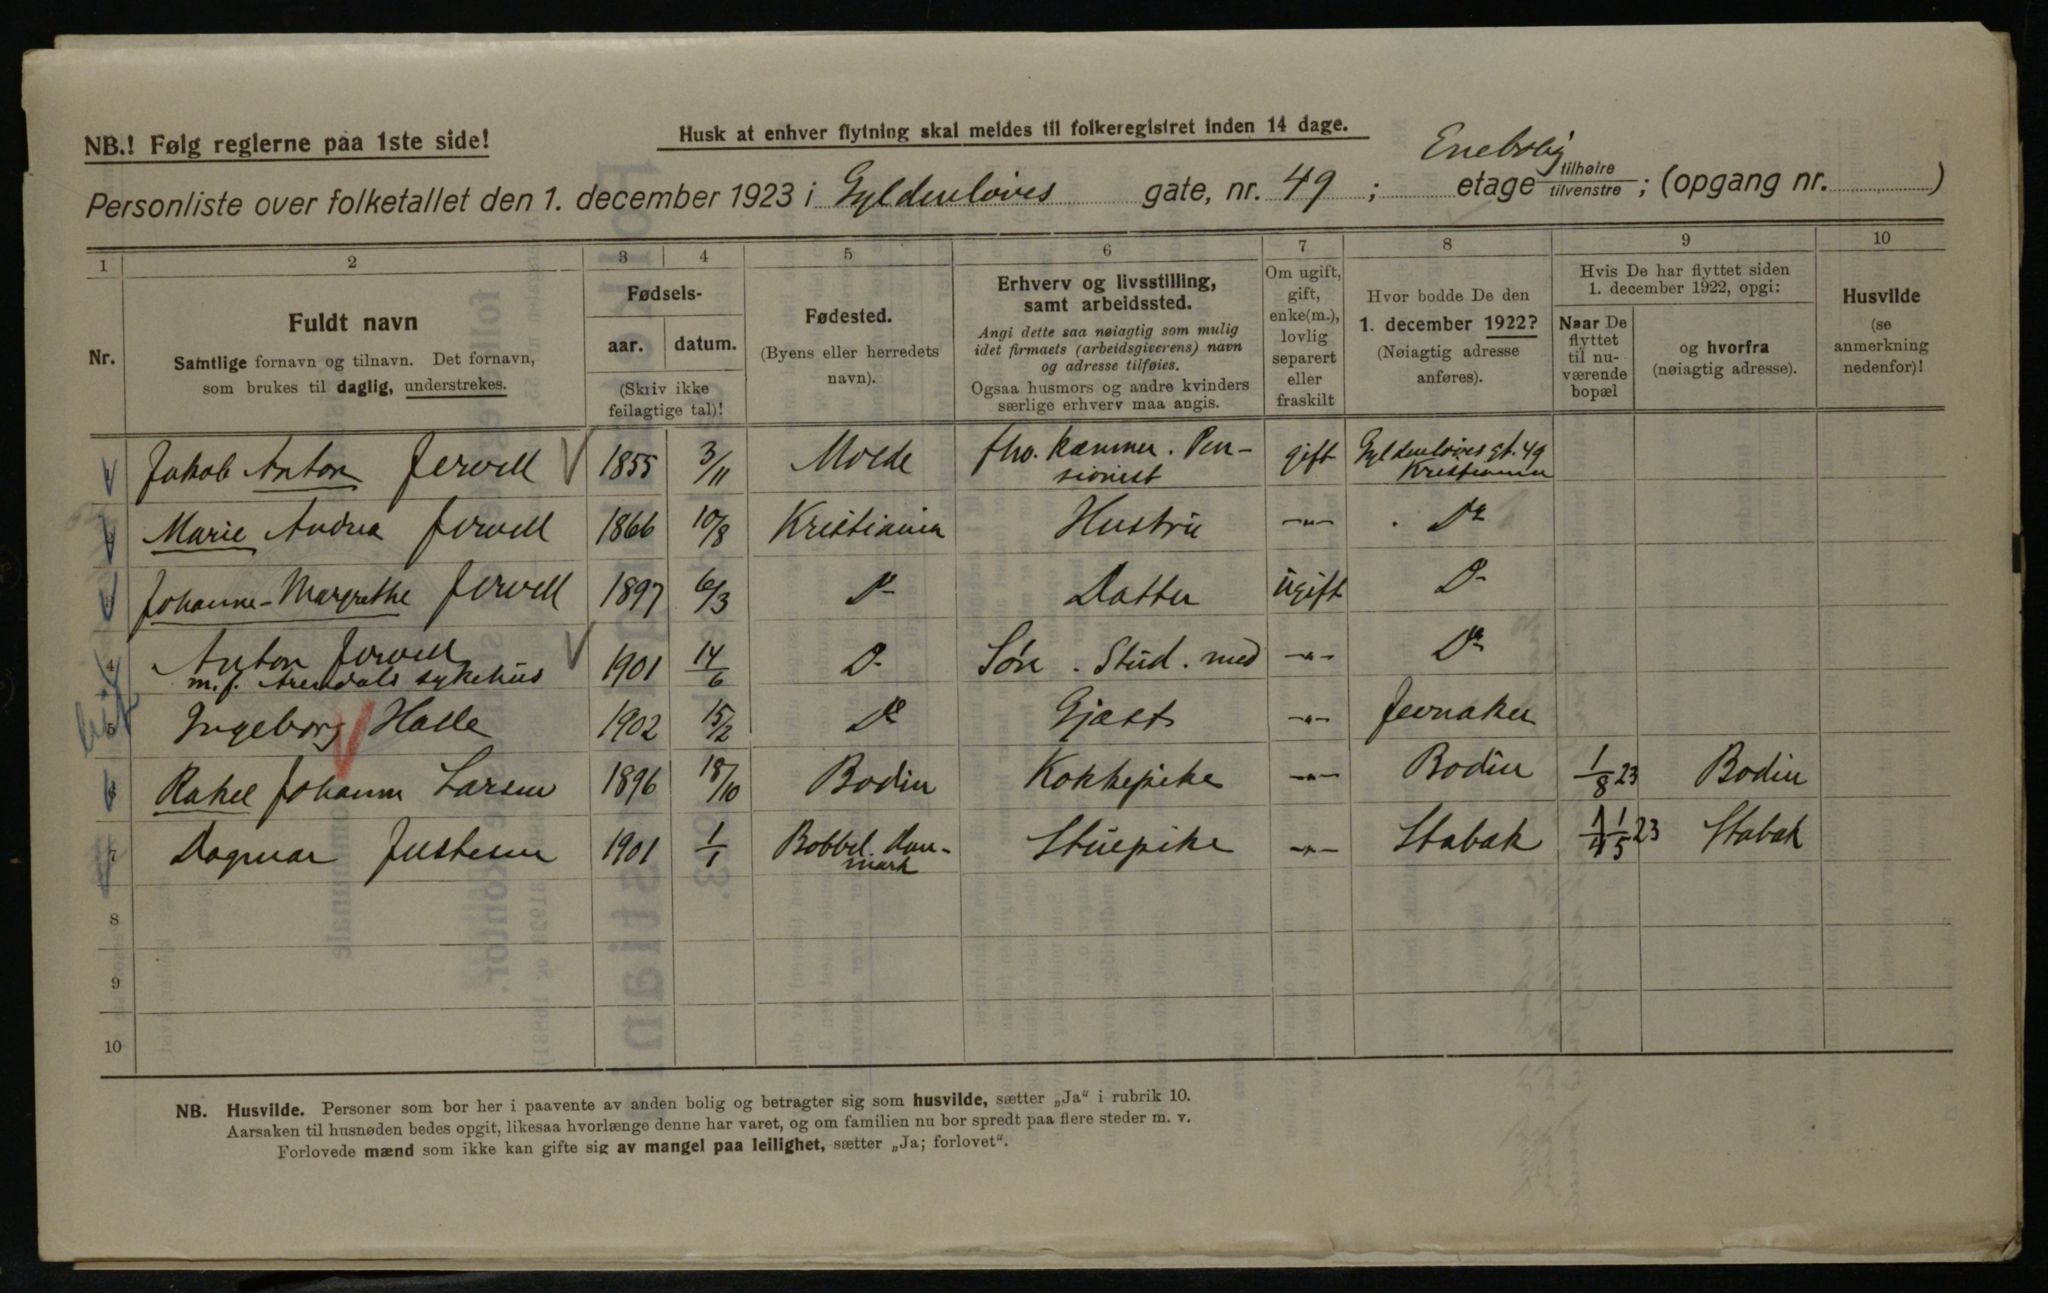 NB.! Følg reglerne paa 1ste side!
Husk at enhver flytning skal meldes til folkeregistret inden 14 dage.
Enebolig
Personliste over folketallet den 1. december 1923 i Gyldenløves gate, nr. 49 ; etage tilhøire / tilvenstre ; (opgang nr. )
1 2 3 4 5 6 7 8 9 10
Nr.
Fuldt navn
Samtlige fornavn og tilnavn. Det fornavn,
som brukes til daglig, understrekes.
Fødsels-
aar. datum.
(Skriv ikke
feilagtige tal)!
Fødested.
(Byens eller herredets
navn).
Erhverv og livsstilling,
samt arbeidssted.
Angi dette saa nøiagtig som mulig
idet firmaets (arbeidsgiverens) navn
og adresse tilføies.
Ogsaa husmors og andre kvinders
særlige erhverv maa angis.
Om ugift,
gift,
enke(m.),
lovlig
separert
eller
fraskilt
Hvor bodde De den
1. december 1922?
(Nøiagtig adresse
anføres).
Hvis De har flyttet siden
1. december 1922, opgi:
Naar De
flyttet
til nu-
værende
bopæl
og hvorfra
(nøiagtig adresse).
Husvilde
(se
anmerkning
nedenfor)!
Jakob Anton Jervell 1855 3/11 Molde fho. kæmner. Pen- gift Gyldenløves gt. 49
sionist Kristiania
Marie Andrea Jervell 1866 10/8 Kristiania Hustru -"- Do
Johanne-Margrethe Jervell 1897 6/3 Do Datter ugift Do
4 Anton Jervell 1901 14/6 Do Søn . Stud. med -"- Do
m.f. Arendals sykehus
5 Ingeborg Halle 1902 15/2 Do Gjæst -"- Jevnaker
6 Rakel Johanne Larsen 1896 18/10 Bodin Kokkepike -"- Bodin 1/8 23 Bodin
7 Dagmar Justesen 1901 1/1 Bobbel. Dan- Stuepike -"- Stabæk 1/5 23 Stabæk
mark
8
9
10
NB. Husvilde. Personer som bor her i paavente av anden bolig og betragter sig som husvilde, sætter „Ja“ i rubrik 10.
Aarsaken til husnøden bedes opgit, likesaa hvorlænge denne har varet, og om familien nu bor spredt paa flere steder m. v.
Forlovede mænd som ikke kan gifte sig av mangel paa leilighet, sætter „Ja; forlovet“.